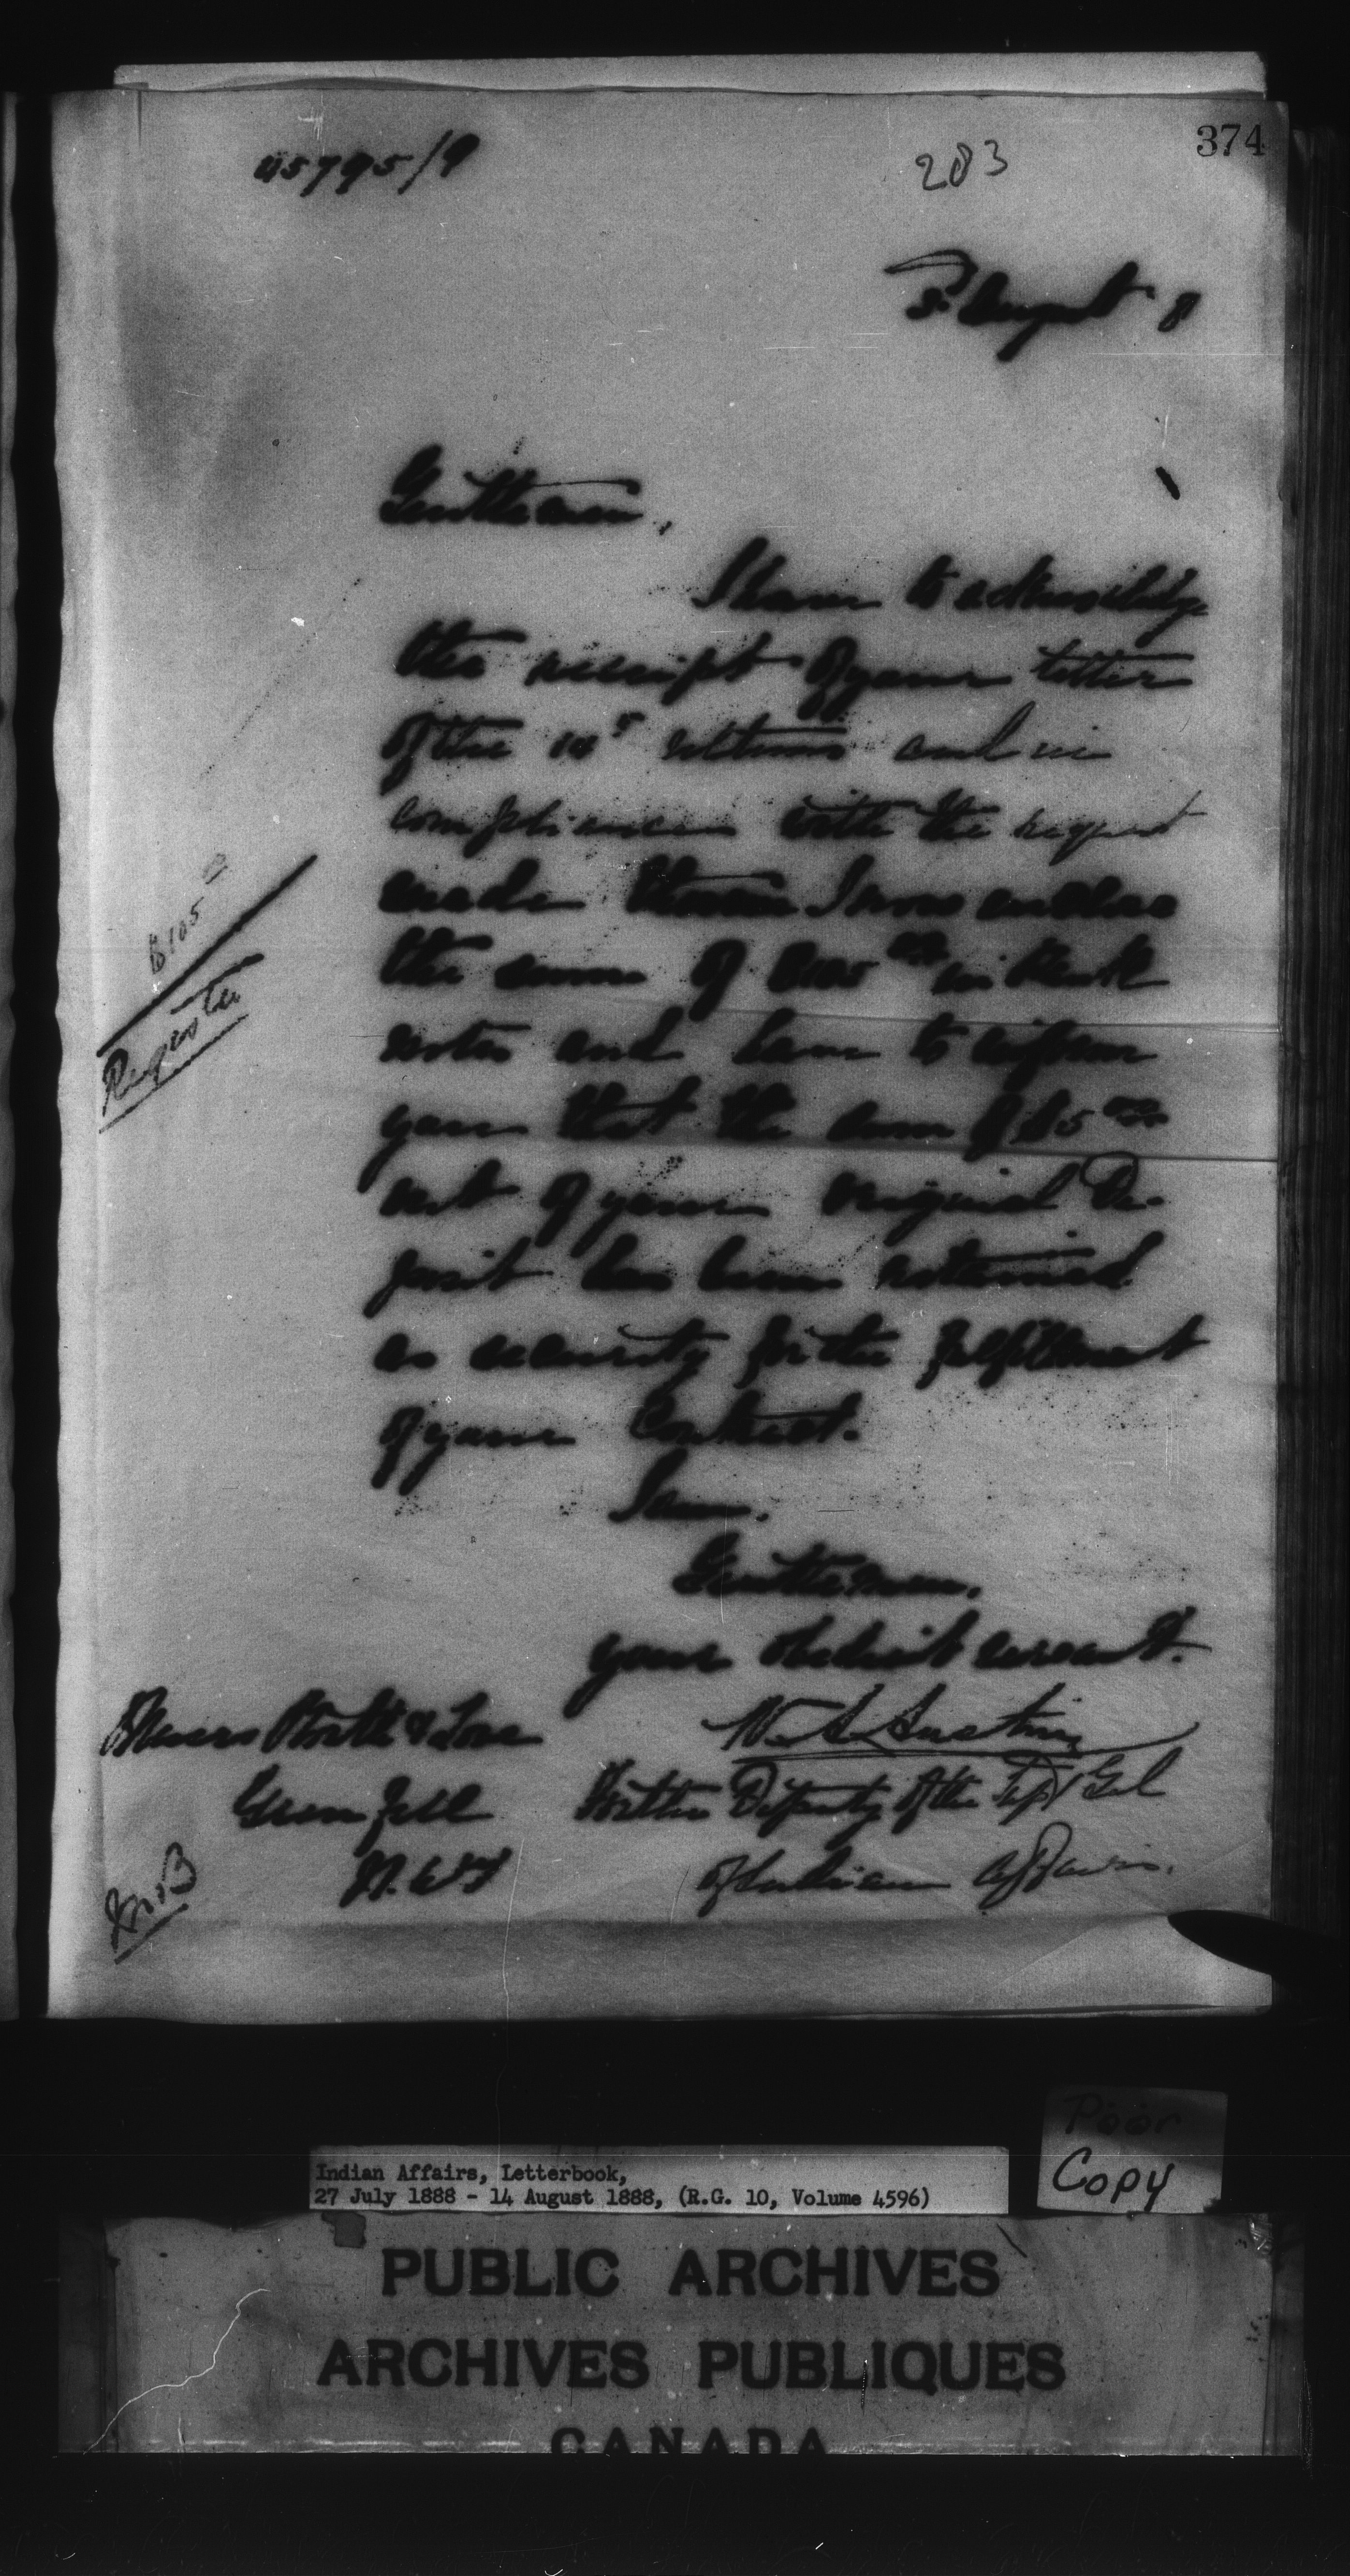 374
283
45795/9
3 August 8
Gentlemen,
I have to acknowledge
the receipt of your letter
of the 10th ultimo and in
compliance with the request
made therein I now enclose
the sum of $105 00 in Bank
notes and have to inform
you that the sum of $5 00
out of your original De-
posit has been retained
as security for the fulfilment
of your Contract.
I am.
Gentlemen,
your obedient servant.
W. A. Austin
For the Deputy of the Supt Genl
of Indian Affairs.
$105
Register
Messrs & Love
Grenfell
N.W.T
Poor
Copy
Indian Affairs, Letterbook,
27 July 1888 - 14 August 1888, (R.G. 10, Volume 4596)
PUBLIC ARCHIVES
ARCHIVES PUBLIQUES
CANADA